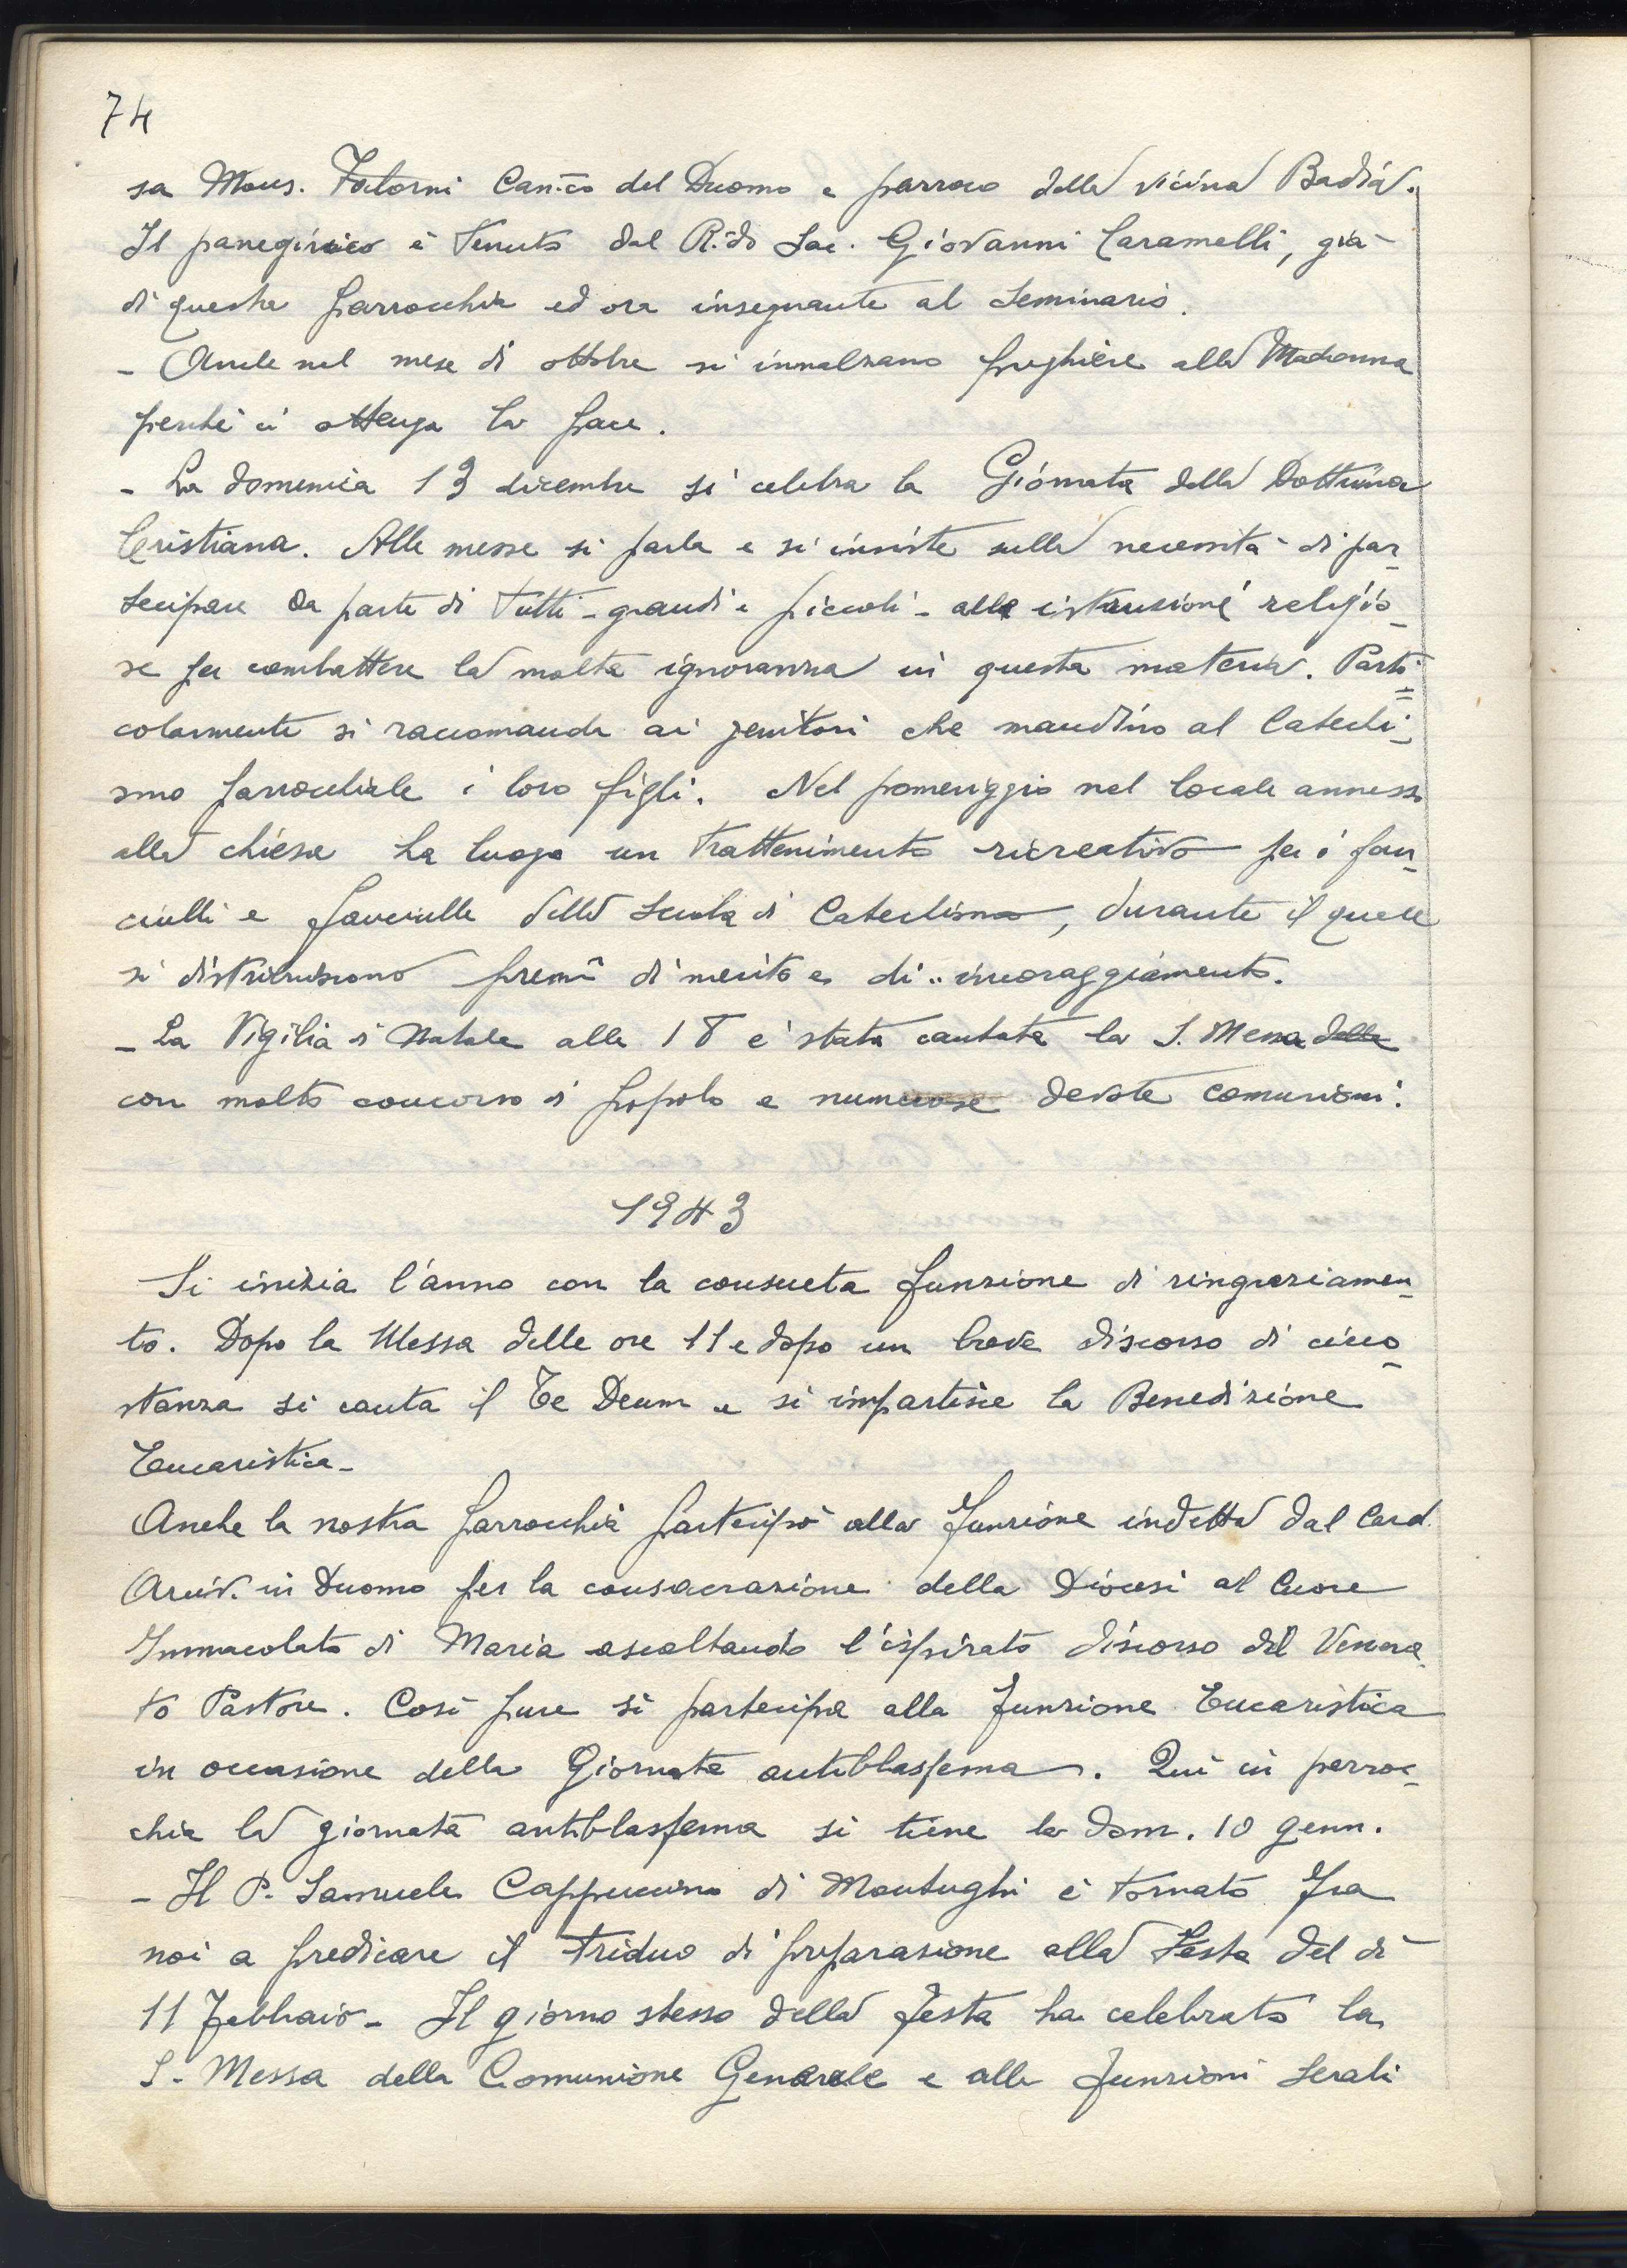 74
sa Mons. Fatorni Can.co del Duomo e parroco della vicina Badia.
Il panegirico è tenuto dal R.do Sac. Giovanni Caramelli, già
di questa parrocchia ed ora insegnante al Seminario.
- Anche nel mese di ottobre si innalzano preghiere alla Madonna
perchè ci ottenga la pace.
- La domenica 13 dicembre si celebra la Giornata della Dottrina
Cristiana. Alle messe si parla e si insiste sulla necessità di par-
tecipare da parte di tutti - grandi e piccoli - alle istruzioni religio-
se per combattere la molta ignoranza in questa materia. Parti=
colarmente si raccomanda ai genitori che mandino al Catechi-
smo parrocchiale i loro figli. Nel pomeriggio nel locale annesso
alla chiesa ha luogo un trattenimento ricreativo per i fan-
ciulli e fanciulle della Scuola di Catechismo, durante il quale
si distribuiscono premi di merito e di.. incoraggiamento.
- La Vigilia di Natale alle 18 è stata cantata la S. Messa delle
con molto concorso di popolo e numerose devote comunioni.
1943
Si inizia l'anno con la consueta funzione di ringraziamen-
to. Dopo la Messa delle ore 11 e dopo un breve discorso di circo-
stanza si canta il Te Deum e si impartisce la Benedizione
Eucaristica -
Anche la nostra parrocchia partecipò alla funzione indetta dal Card.
Arciv. in Duomo per la consacrazione della Diocesi al Cuore
Immacolato di Maria ascoltando l'ispirato discorso del Venera-
to Pastore. Così pure si partecipa alla funzione Eucaristica
in occasione della Giornata antiblasfema. Qui in parroc-
chia la giornata antiblasfema si tiene la dom. 10 genn.
- Il P. Samuele Cappuccino di Montughi è tornato fra
noi a predicare il triduo di preparazione alla Festa del dì
11 febbraio - Il giorno stesso della festa ha celebrato la
S. Messa della Comunione Generale e alle funzioni serali